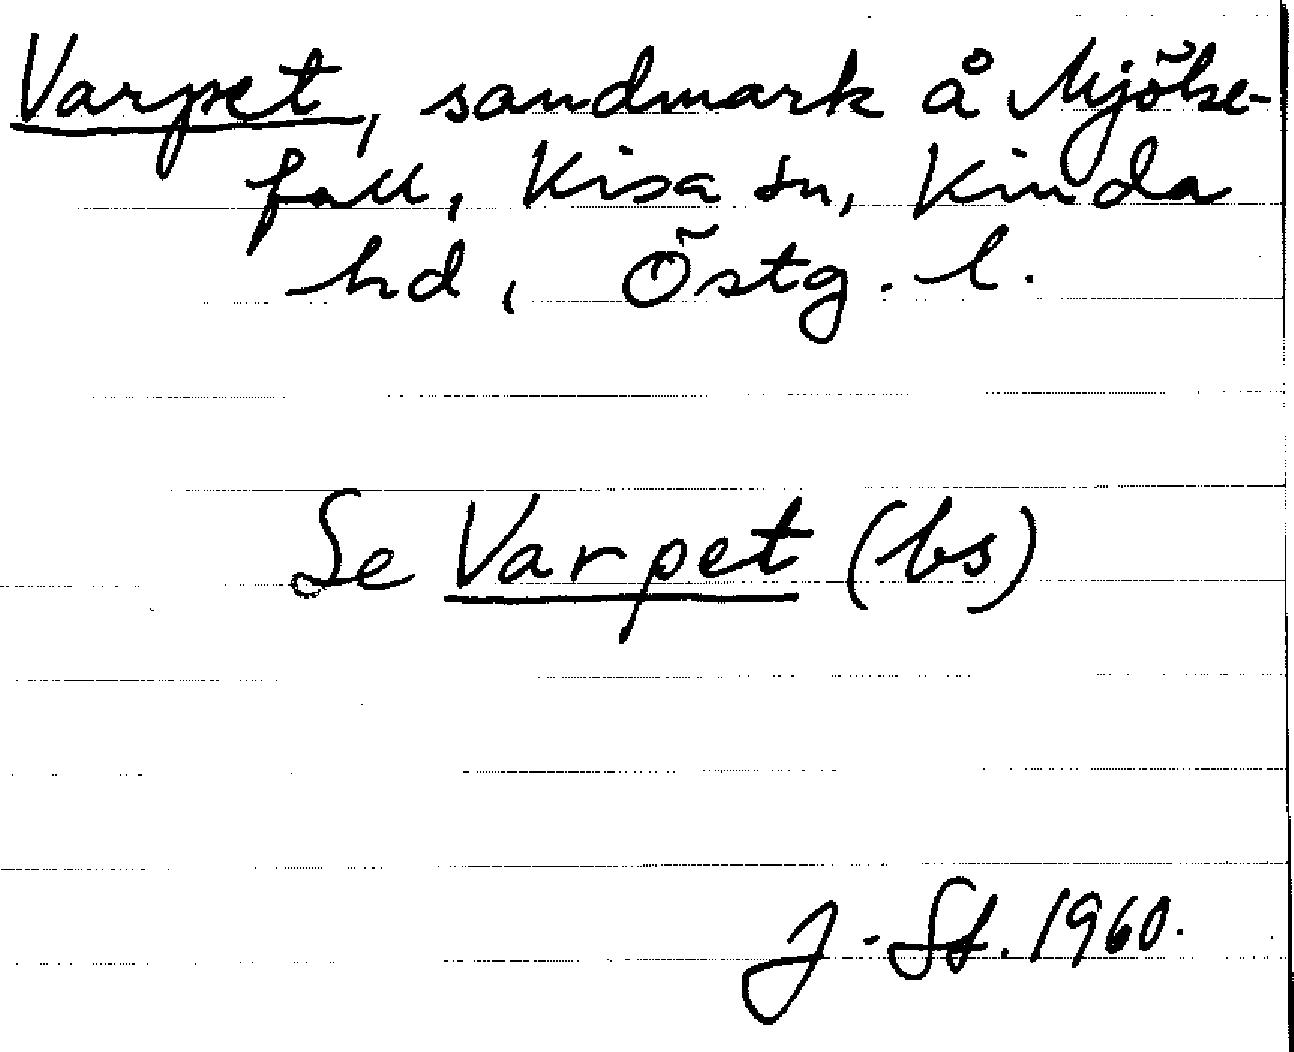 Varpet, sandmark å Mjölse-
fall, Kisa sn, Kinda
hd, Östg. l.
Se Varpet (bs)
J. St. 1960.